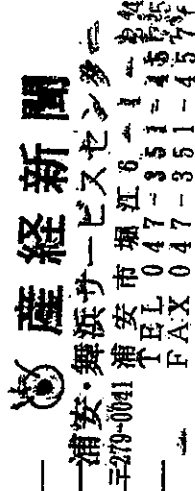 産経新聞
浦安・舞浜サービスセンター
〒279-0041 浦安市堀江6-1-
TEL 047-351-
FAX 047-351-457